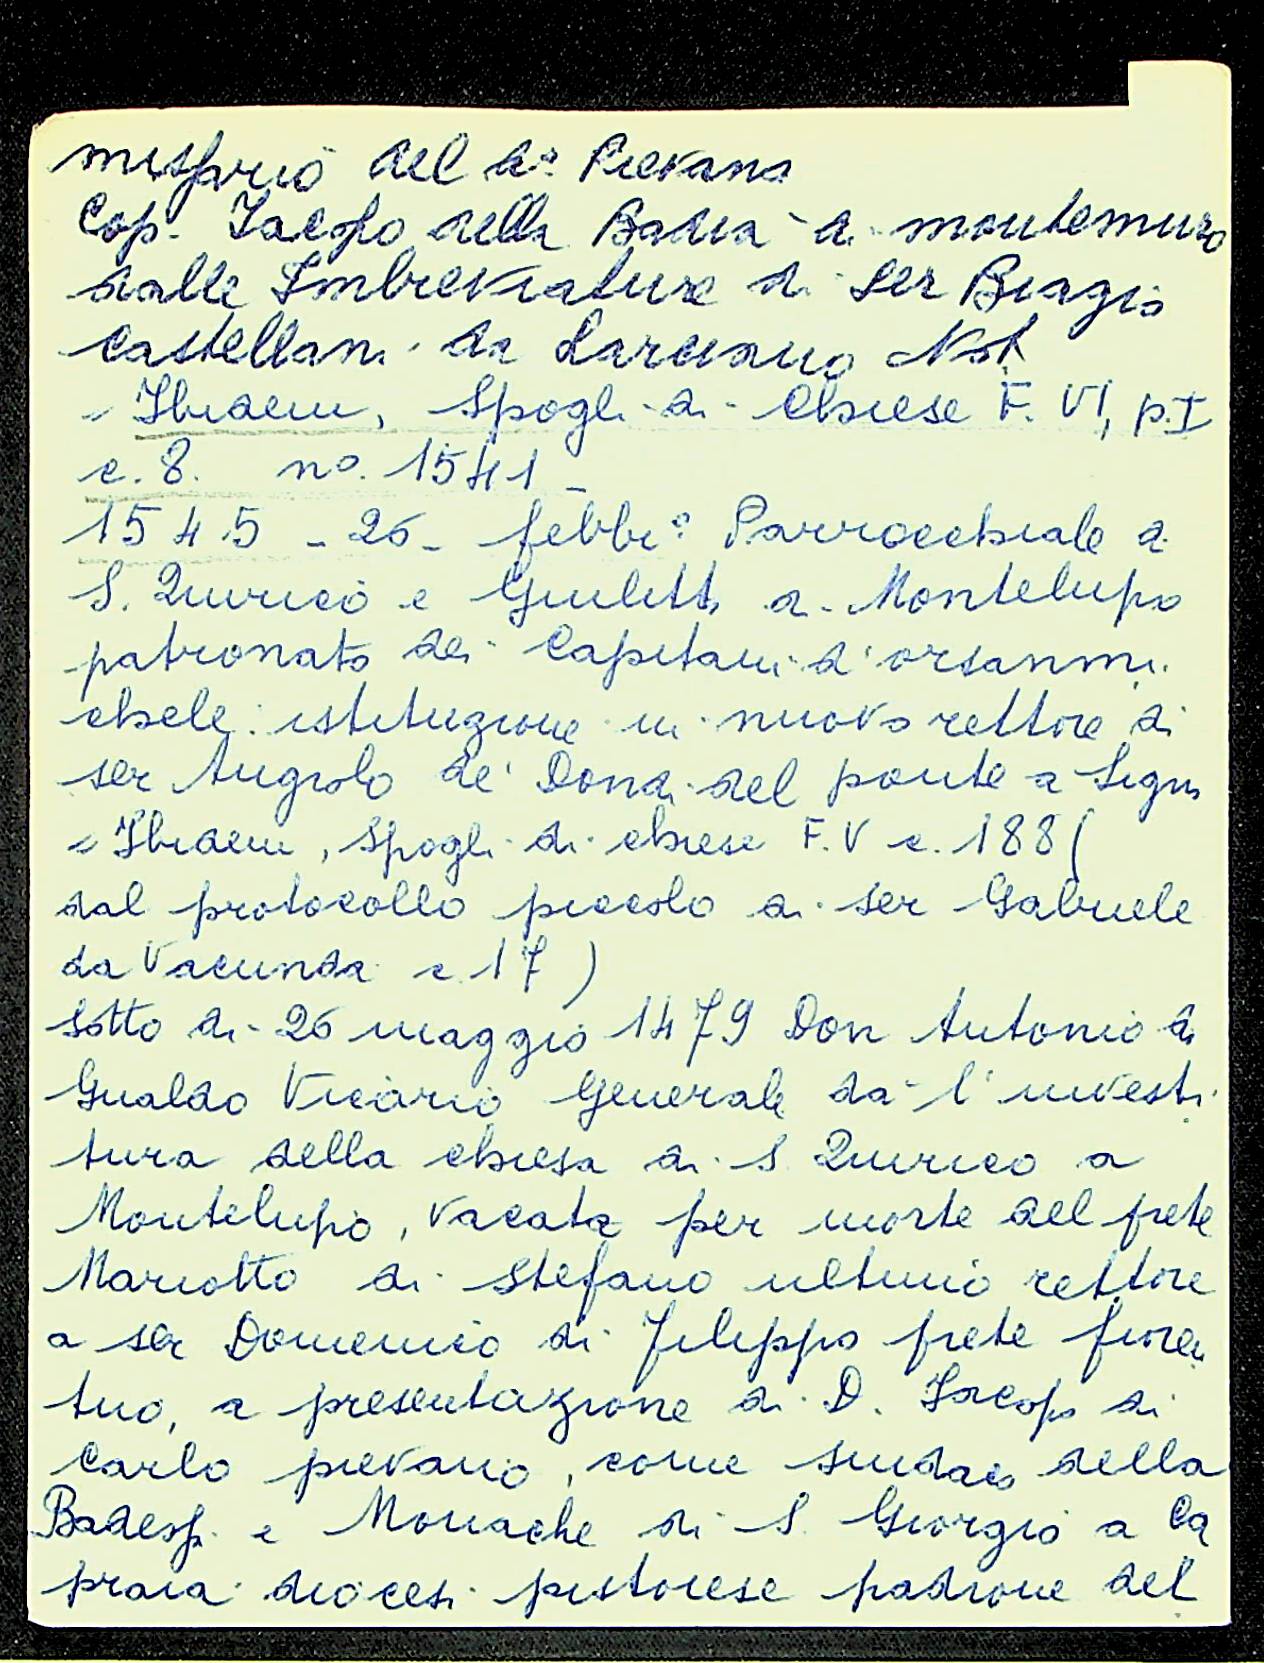 del d.º Pievano
Cop. Iacopo della Badia a montemuro
dalle Imbreviature di ser Biagio
Castellani da Larciano Not.
= Ibidem, Spogli di Chiese F. VI, p. I
c. 8. nº. 1541 -
1545 - 26 - febbr.º Parrocchiale di
S. Quirico e Giulitta a Montelupo
patronato dei Capitani d'orsanmi-
chele: istituzione in nuovo rettore di
ser Angiolo de' Donati del ponte a Signa
= Ibidem, Spogli di chiese F. V c. 188 (
dal protocollo piccolo di ser Gabriele
da Vacunda c. 17)
Sotto di 26 maggio 1479 Don Antonio di
Gualdo Vicario Generale dà l'investi-
tura della chiesa di S. Quirico a
Montelupo, vacata per morte del prete
Mariotto di Stefano ultimo rettore
a ser Domenico di Filippo prete fioren
tino, a presentazione di D. Iacopo di
Carlo pievano, come sindaco della
Badess. e Monache di S. Giorgio a Ca
praia diocesi pistoiese padrone del